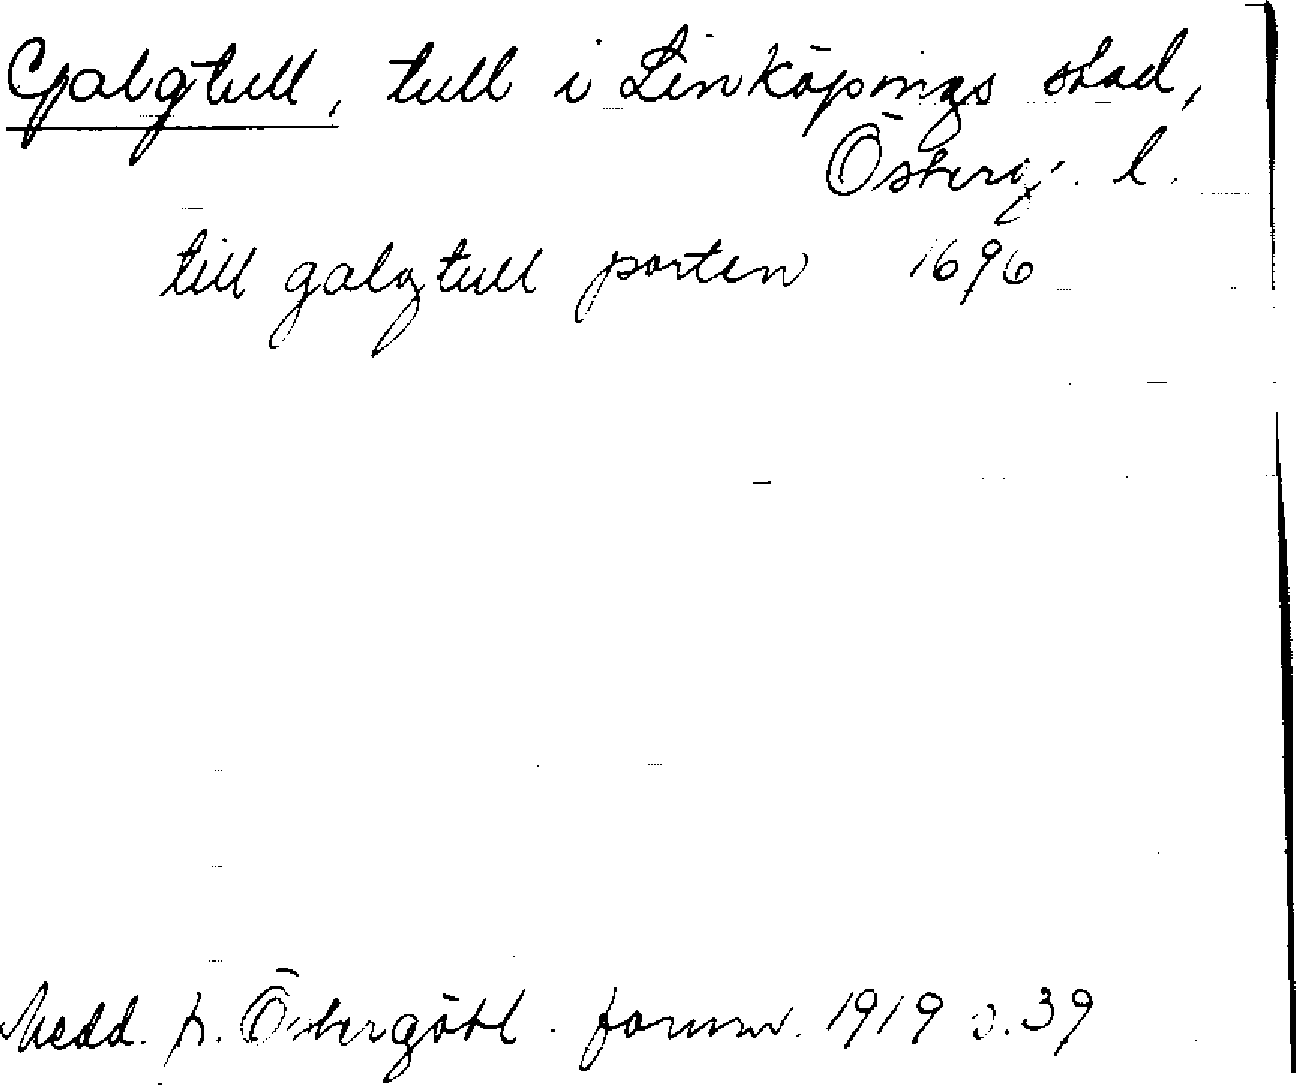 Galgtull, tull i Linköpings stad,
Österg. l.
till galgtull porten 1696
Medd. fr. Östergötl. fornm. 1919 s. 39